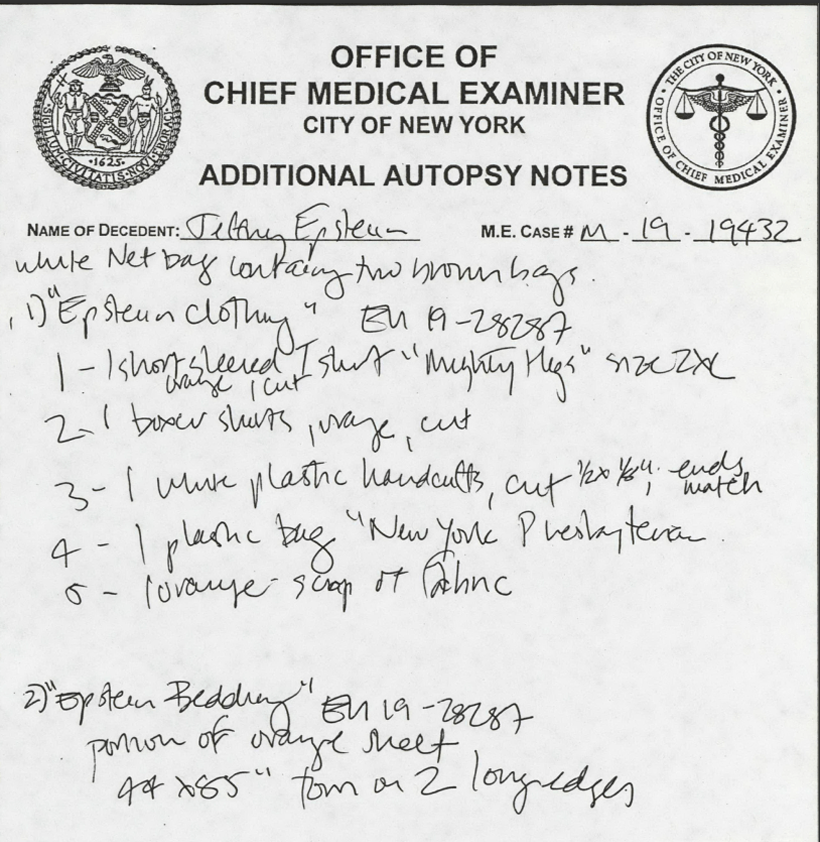 OFFICE OF
CHIEF MEDICAL EXAMINER
CITY OF NEW YORK
ADDITIONAL AUTOPSY NOTES
SIGILLVM CIVITATIS NOVI EBORACI
1625
THE CITY OF NEW YORK
OFFICE OF CHIEF MEDICAL EXAMINER
NAME OF DECEDENT: Jeffrey Epstein M.E. CASE # M - 19 - 19432
white Net bag containing two brown bags.
1) "Epstein Clothing" EU 19-28287
1 - 1 short sleeved T shirt "Mighty Hegs" size 2XL
orange, cut
2 - 1 boxer shorts, orange, cut
3 - 1 white plastic handcuffs, cut 1/2 x 1/8", ends
match
4 - 1 plastic bag "New York Presbyterian
5 - 1 orange scrap of fabric
2) "Epstein Bedding" EU 19-28287
portion of orange sheet
44 x 85" torn on 2 long edges